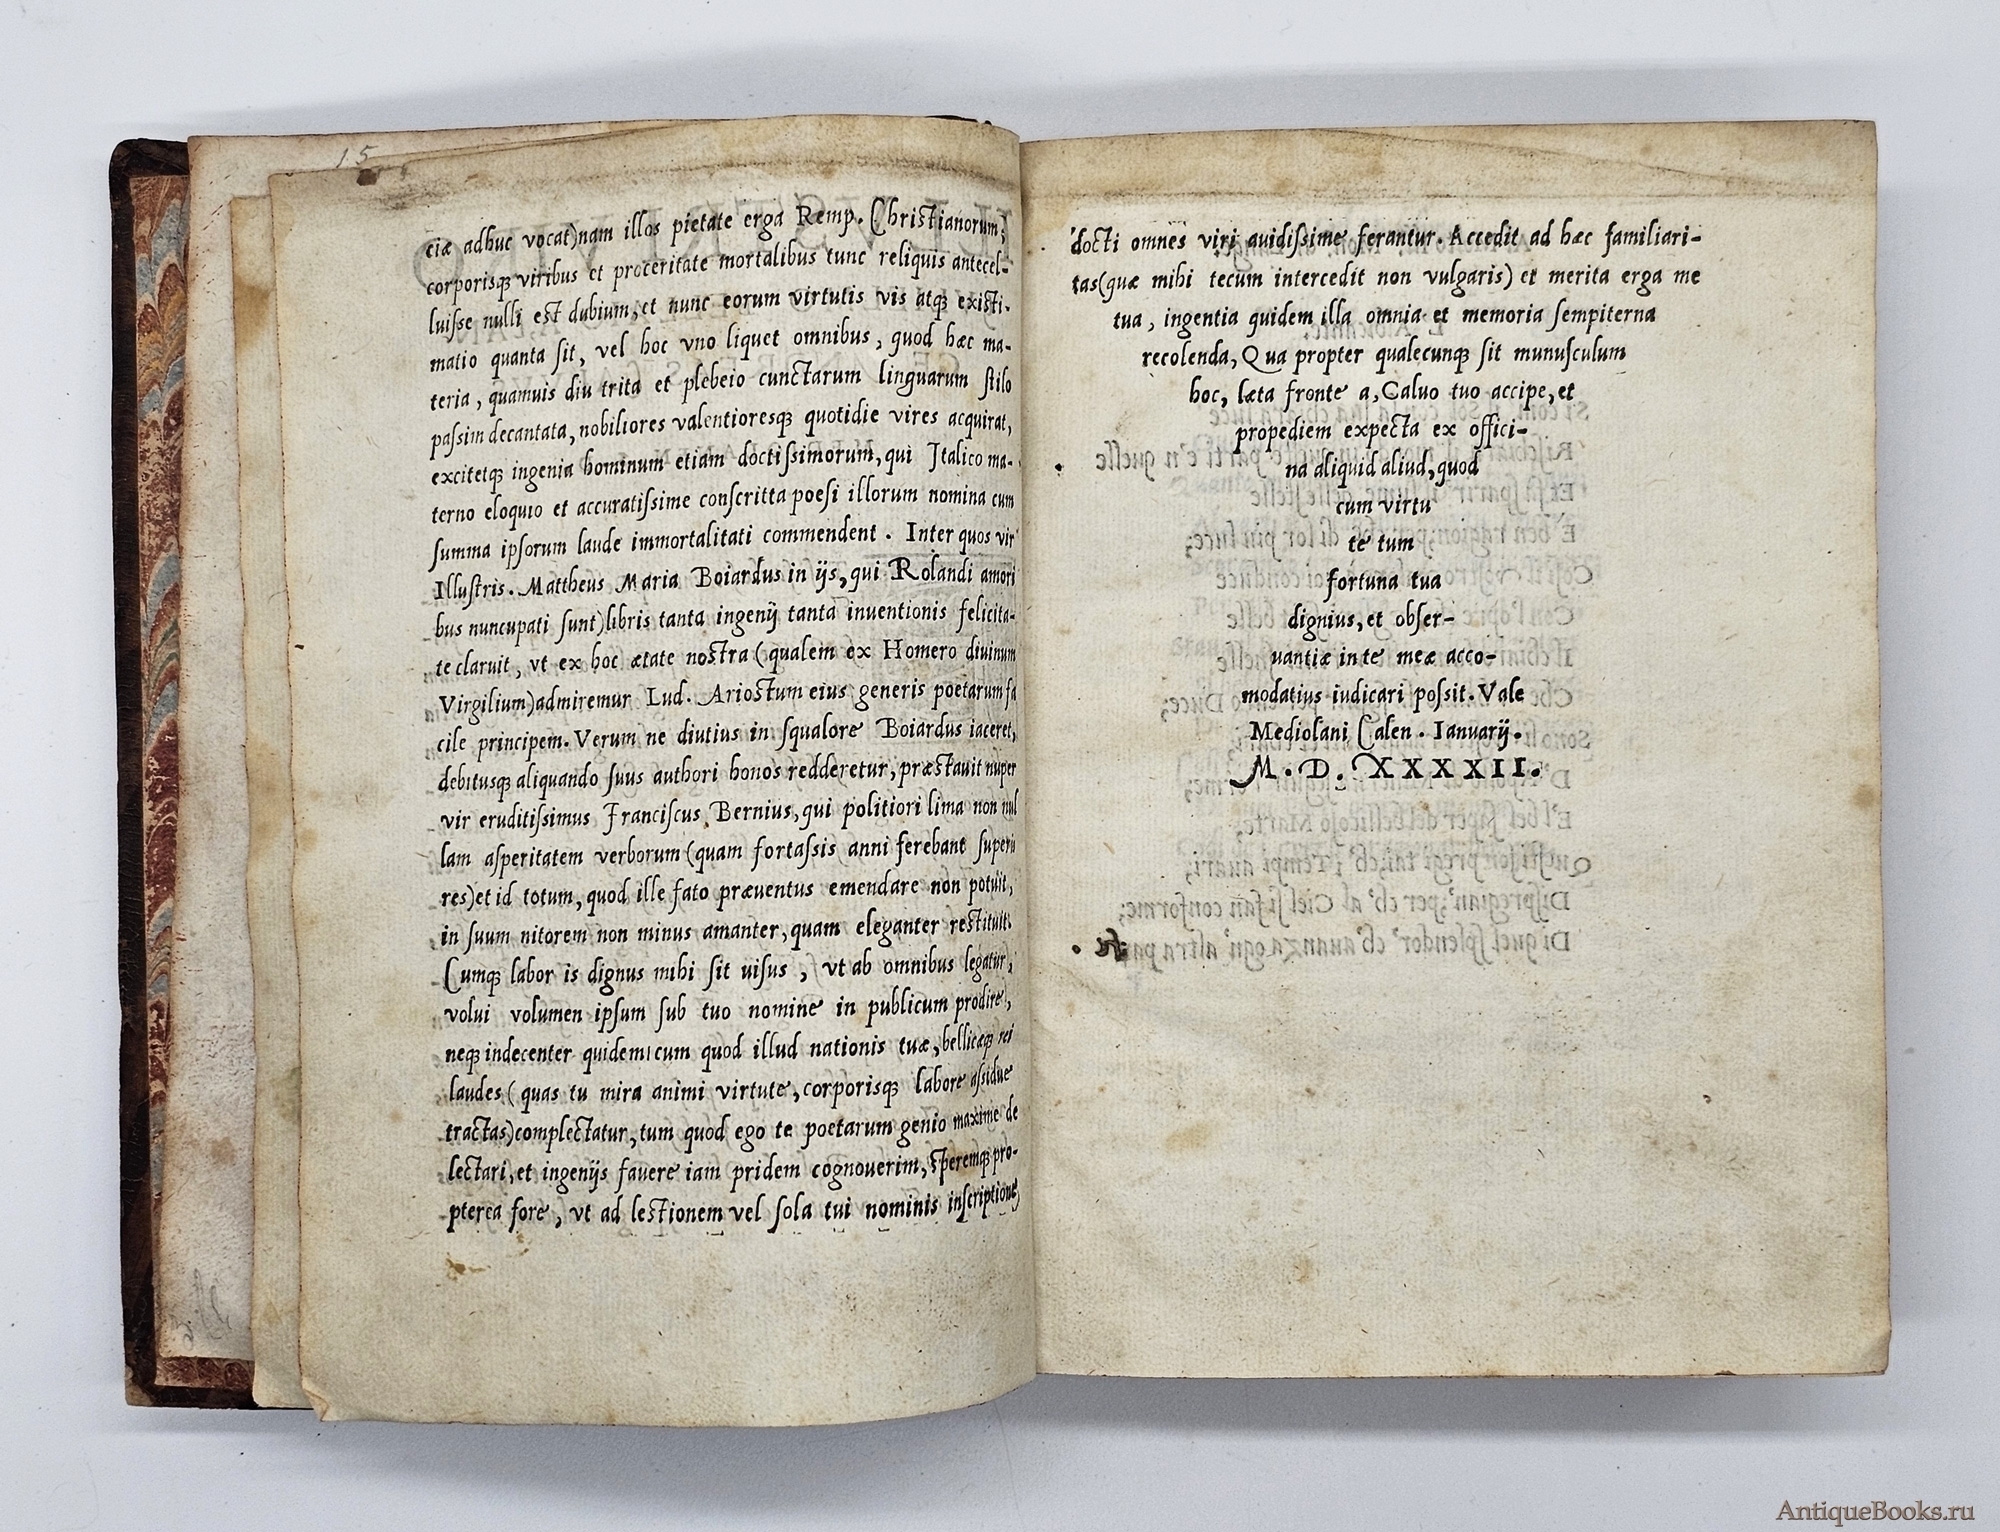 15
ciæ adhuc vocat)nam illos pietate erga Remp. Christianorum,
corporisq; viribus et proceritate mortalibus tunc reliquis antecel-
luiſse nulli est dubium, et nunc eorum virtutis vis atq; existi-
matio quanta ſit, vel hoc vno liquet omnibus, quod hæc ma-
teria, quamuis diu trita et plebeio cunctarum linguarum ſtilo
paſsim decantata, nobiliores valentioresq; quotidie vires acquirat,
excitetq; ingenia hominum etiam doctiſsimorum, qui Italico ma-
terno eloquio et accuratiſsime conſcritta poesi illorum nomina cum
ſumma ipſorum laude immortalitati commendent. Inter quos vir
Illuſtris. Mattheus Maria Boiardus in ijs, qui Rolandi amori
bus nuncupati ſunt)libris tanta ingenij tanta inuentionis felicita-
te claruit, vt ex hoc ætate nostra (qualem ex Homero diuinum
Virgilium)admiremur Lud. Ariostum eius generis poetarum fa
cile principem. Verum ne diutius in ſqualore Boiardus iaceret,
debitusq; aliquando ſuus authori honos redderetur, præstauit nuper
vir eruditiſsimus Franciſcus Bernius, qui politiori lima non nul
lam aſperitatem verborum (quam fortaſsis anni ferebant ſuperio
res)et id totum, quod ille fato præuentus emendare non potuit,
in ſuum nitorem non minus amanter, quam eleganter restituit:
Cumq; labor is dignus mihi ſit uiſus, vt ab omnibus legatur,
volui volumen ipſum ſub tuo nomine in publicum prodire,
neq; indecenter quidem: cum quod illud nationis tuæ, bellicæq; rei
laudes (quas tu mira animi virtute, corporisq; labore aſsidue
tractas)complectatur, tum quod ego te poetarum genio maxime de
lectari, et ingenijs fauere iam pridem cognouerim, ſperemq; pro-
pterea fore, vt ad lectionem vel ſola tui nominis inſcriptione,
docti omnes viri auidiſsime ferantur. Accedit ad hæc familiari-
tas(quæ mihi tecum intercedit non vulgaris) et merita erga me
tua, ingentia quidem illa omnia et memoria ſempiterna
recolenda, Qua propter qualecunq; ſit munuſculum
hoc, læta fronte a, Caluo tuo accipe, et
propediem expecta ex offici-
na aliquid aliud, quod
cum virtu
te tum
fortuna tua
dignius, et obſer-
uantiæ in te meæ acco-
modatius iudicari poſsit. Vale
Mediolani Calen. Ianuarij.
M. D. XXXXII.
AntiqueBooks.ru